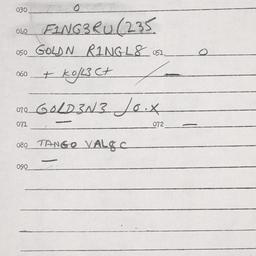 030 0
040 F1NG3RU(235
050 GOLDN R1NGL8 051 0
060 + KO/L3C+ / —
070 GOLD3N3 JO.X
071 — 072 —
080 TANGO VAL8C
—
090